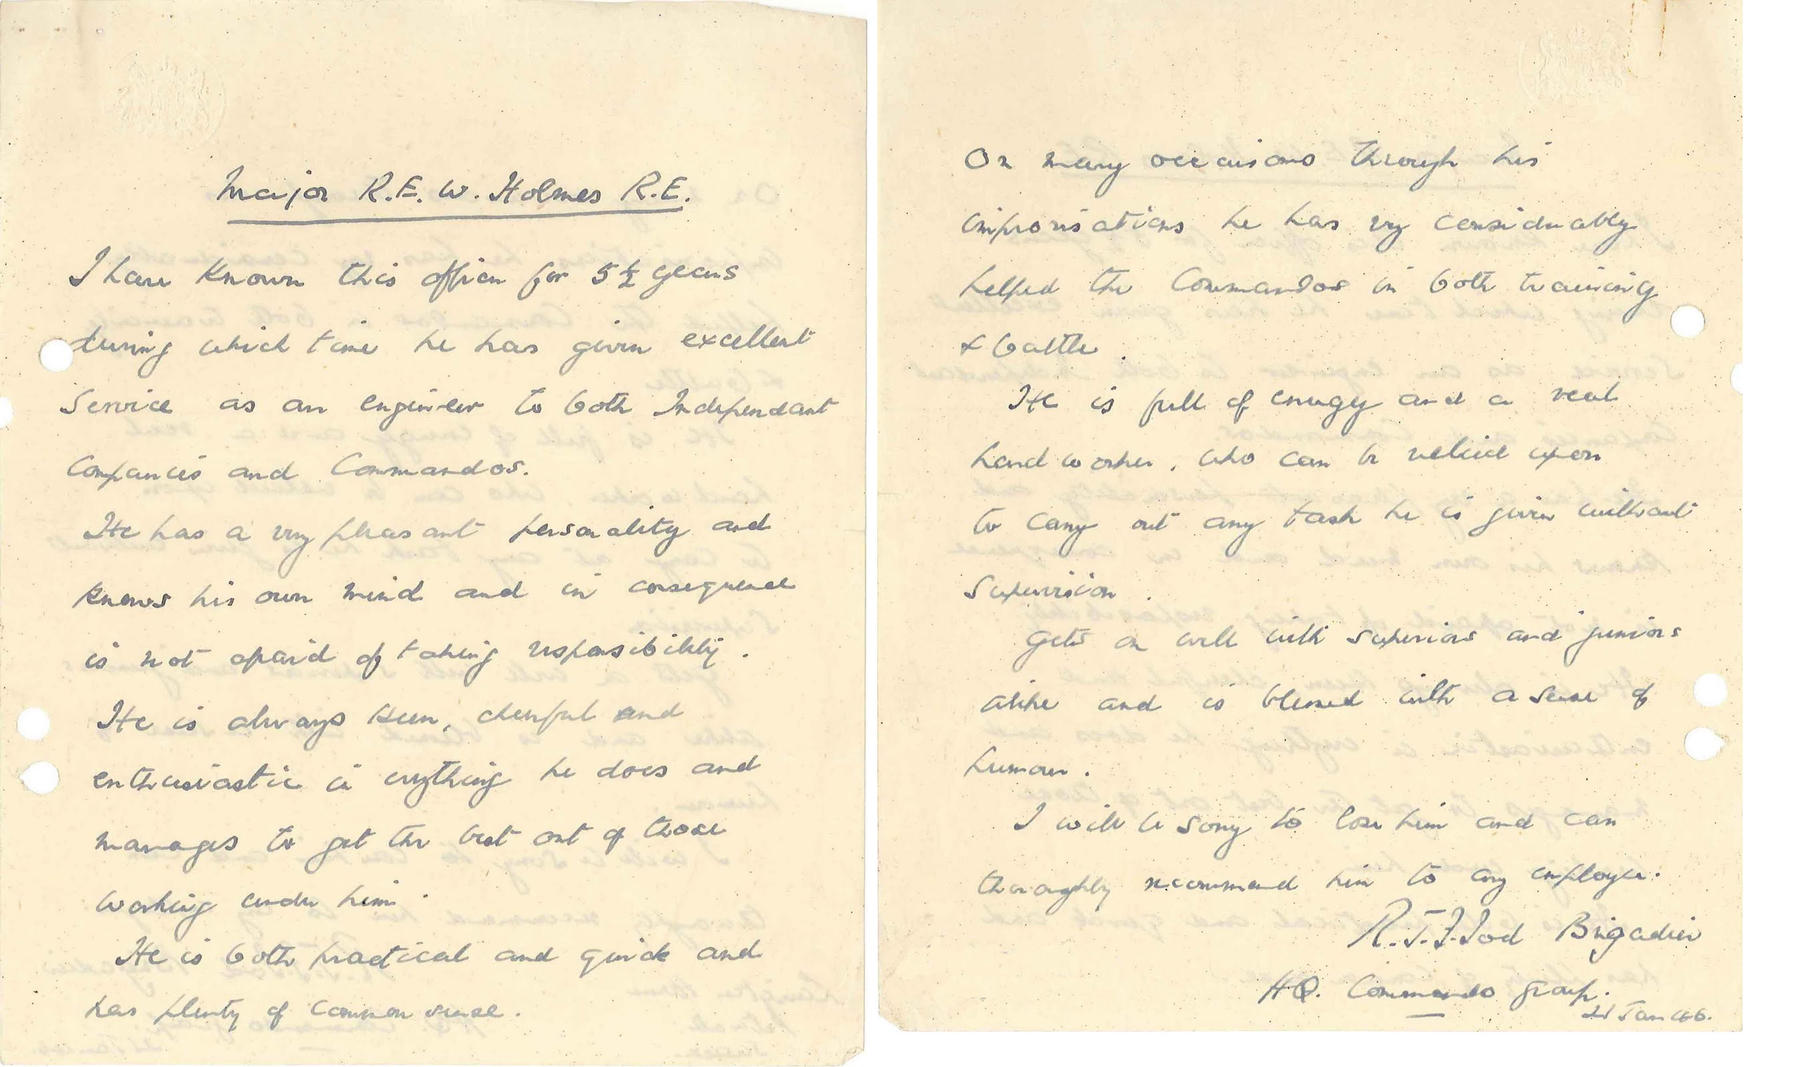 Major R.F.W. Holmes R.E.
I have known this officer for 5½ years
during which time he has given excellent
Service as an engineer to both Independant
Companies and Commandos.
He has a very pleasant personality and
knows his own mind and in consequence
is not afraid of taking responsibility.
He is always keen, cheerful and
enthusiastic in everything he does and
manages to get the best out of those
working under him.
He is both practical and quick and
has plenty of common sense.
On many occaisons through his
improvisations he has very considerably
helped the Commandos in both training
& battle.
He is full of energy and a real
hard worker, who can be relied upon
to carry out any task he is given without
supervision.
Gets on well with superiors and juniors
alike and is blessed with a sense of
humour.
I will be sorry to lose him and can
thoroughly recommend him to any employer.
R.J.F. Tod Brigadier
HQ. Commando Group.
21 Jan 46.